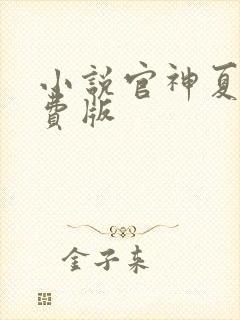 小說官神夏
費版
金子来